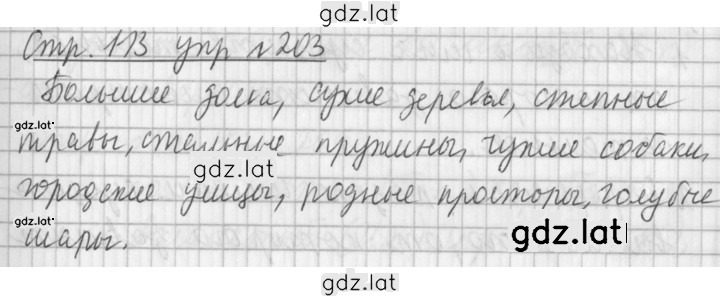 gdz.lat
Стр. 113 упр №203
Большие доска, сухие деревья, степные
gdz.lat
травы, стальные пружины, чужие собаки,
gdz.lat
городские улицы, родные просторы, голубые
gdz.lat
шары.
gdz.lat
gdz.lat